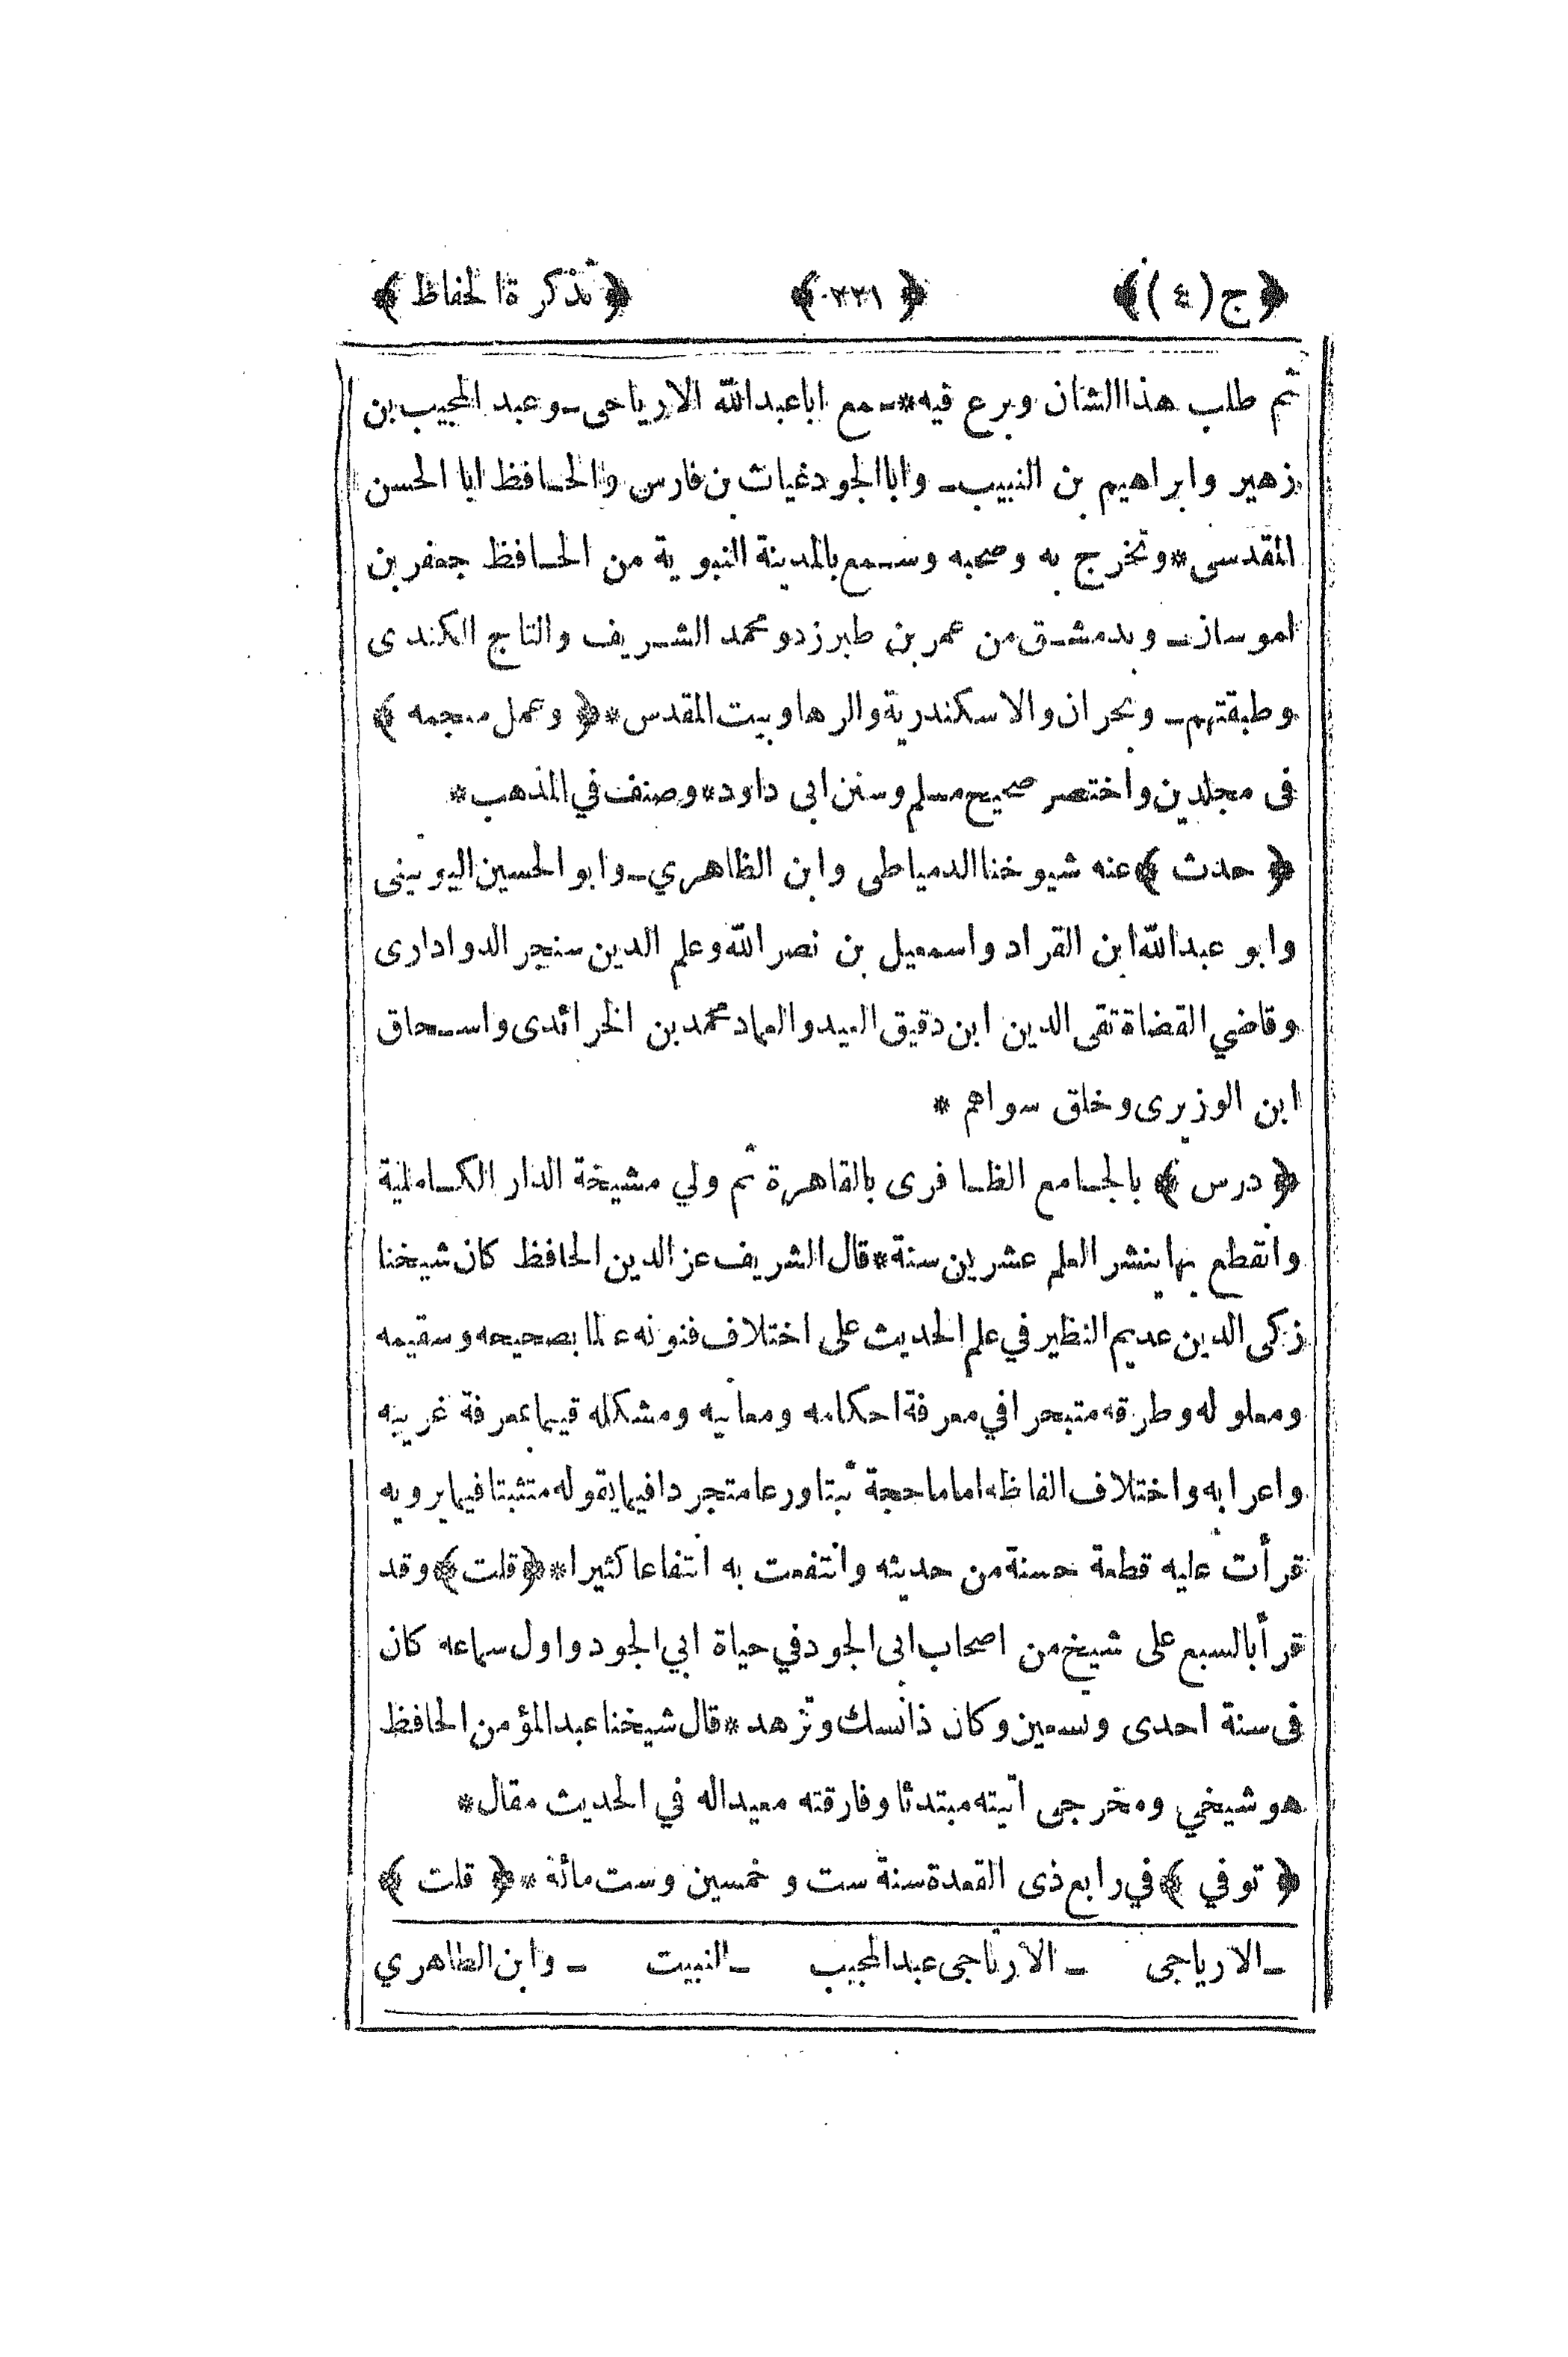 ﴿ج(٤)﴾ ﴿٢٢١﴾ ﴿تذكرة الحفاظ﴾
ثم طلب هذا الشان وبرع فيه*ـ مع اباعبدالله الارياحى ـ وعبد المجيب بن
زهير وابراهيم بن النبيب ـ وابا الجود غياث بن فارس والحافظ ابا الحسن
المقدسى*وتخرج به وصحبه وسمع بالمدينة النبوية من الحافظ جعفر بن
اموساز ـ وبدمشق من عمر بن طبرزد ومحمد الشريف والتاج الكندى
وطبقتهم ـ وبحران والاسكندرية والرها وبيت المقدس*﴿ وعمل معجمه ﴾
فى مجلدين واختصر صحيح مسلم وسنن ابى داود*وصنف في المذهب*
﴿ حدث ﴾عنه شيوخنا الدمياطى وابن الظاهري ـ وابو الحسين اليونينى
وابو عبدالله ابن القراد واسمعيل بن نصر الله وعلم الدين سنجر الدوادارى
وقاضي القضاة تقى الدين ابن دقيق العيد والعماد محمد بن الخرائدى واسحاق
ابن الوزيرى وخلق سواهم *
﴿ درس ﴾ بالجامع الظافرى بالقاهرة ثم ولي مشيخة الدار الكاملية
وانقطع بها ينشر العلم عشرين سنة*قال الشريف عز الدين الحافظ كان شيخنا
زكى الدين عديم النظير في علم الحديث على اختلاف فنونه عالما بصحيحه وسقيمه
ومعلوله وطرقه متبحرا في معرفة احكامه ومعانيه ومشكله قيما بمعرفة غريبه
واعرابه واختلاف الفاظه اماما حجة ثبتا ورعا متجردا فيما يقوله متثبتا فيما يرويه
قرأت عليه قطعة حسنة من حديثه وانتفعت به انتفاعا كثيرا*﴿قلت﴾وقد
قرأ بالسبع على شيخ من اصحاب ابى الجود في حياة ابي الجود واول سماعه كان
فى سنة احدى وتسعين وكان ذا نسك وتزهد*قال شيخنا عبدالمؤمن الحافظ
هو شيخي ومخرجى اتيته مبتدئا وفارقته معيدا له في الحديث مقال*
﴿ توفي ﴾في رابع ذى القعدة سنة ست و خمسين وست مائة *﴿ قلت ﴾
ـ الارياجى ـ الارتاجى عبدالمجيب ـ النبيت ـ وابن الطاهري